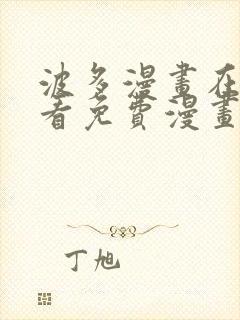 波多漫畫在
看免費漫畫
丁旭